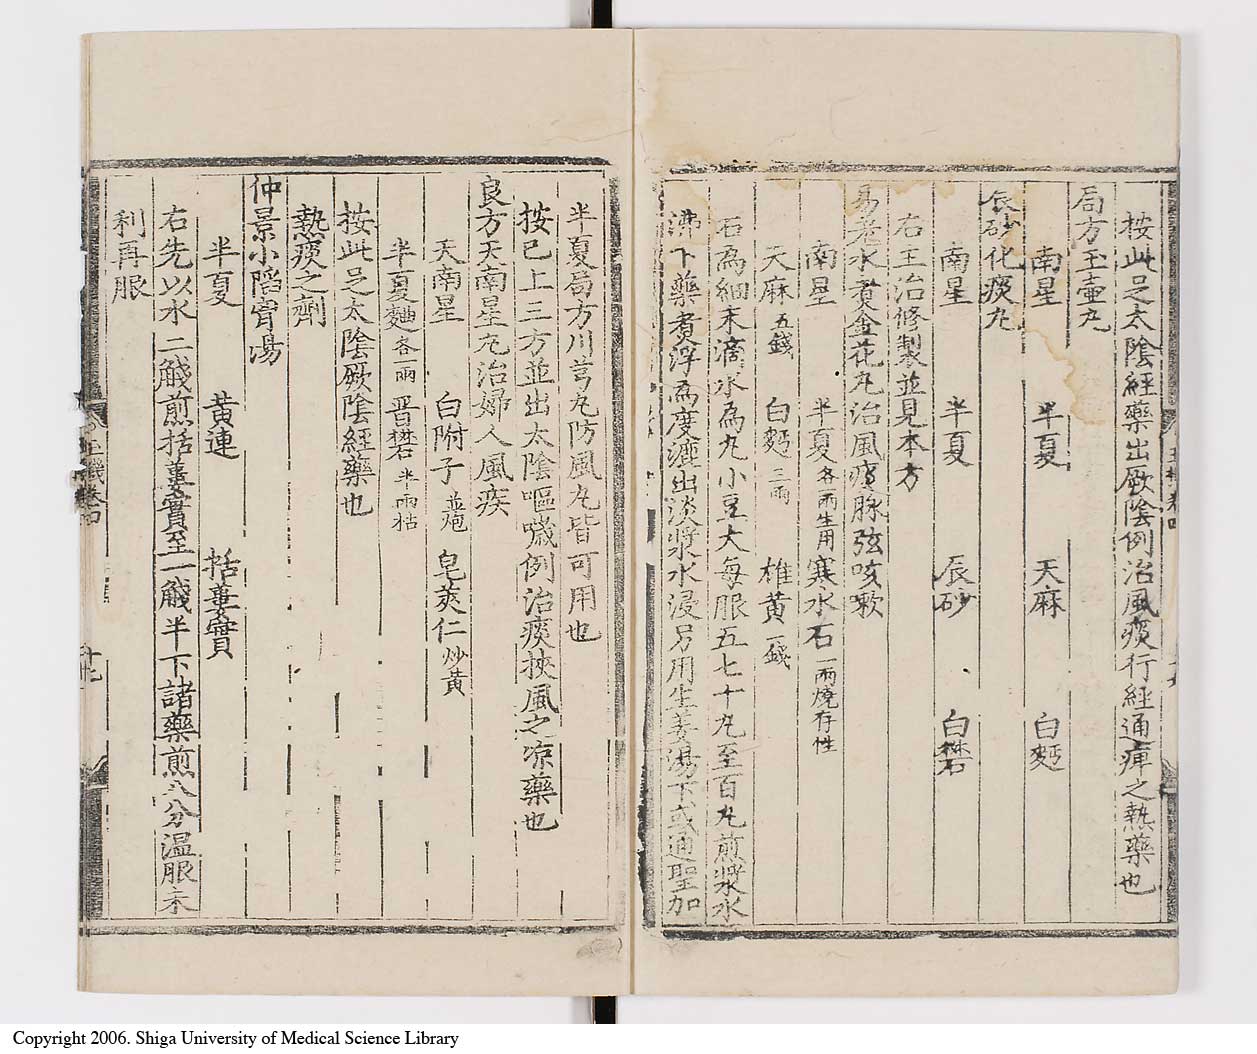 按此足太陰經藥出厥陰例治風痰行經通痺之熱藥也
局方玉壷丸
南星 半夏 天麻 白麪
辰砂化痰丸
南星 半夏 辰砂 白礬
右主治修製並見本方
易老水煮金花丸治風痰脉弦咳嗽
南星 半夏各一兩生用 寒水石一兩燒存性
天麻五錢 白麪三兩 雄黄一錢
右為細末滴水為丸小豆大每服五七十丸至百丸煎漿水
沸下藥煮浮為度漉出淡漿水浸另用生姜湯下或通聖加
半夏局方川芎丸防風丸皆可用也
按已上三方並出太陰嘔噦例治痰挾風之凉藥也
良方天南星丸治婦人風痰
天南星 白附子並炮 皂莢仁炒黄
半夏麯各一兩 晋礬半兩枯
按此足太陰厥陰經藥也
熱痰之劑
仲景小陷胷湯
半夏 黄連 栝蔞實
右先以水二醆煎栝蔞實至一醆半下諸藥煎八分温服未
利再服
玉機卷四
Copyright 2006. Shiga University of Medical Science Library